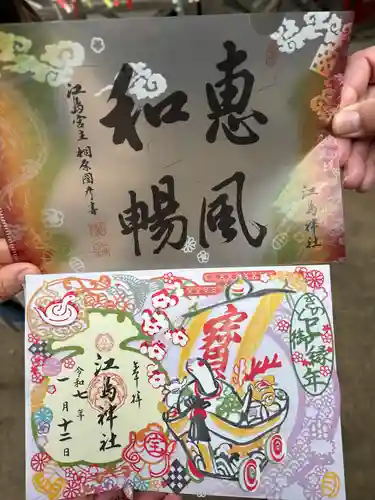 惠風
和暢
江島宮主 相原圀彦書
江島神社
きのと巳御縁年
寶
奉拝
江島神社
令和七年
一月十二日